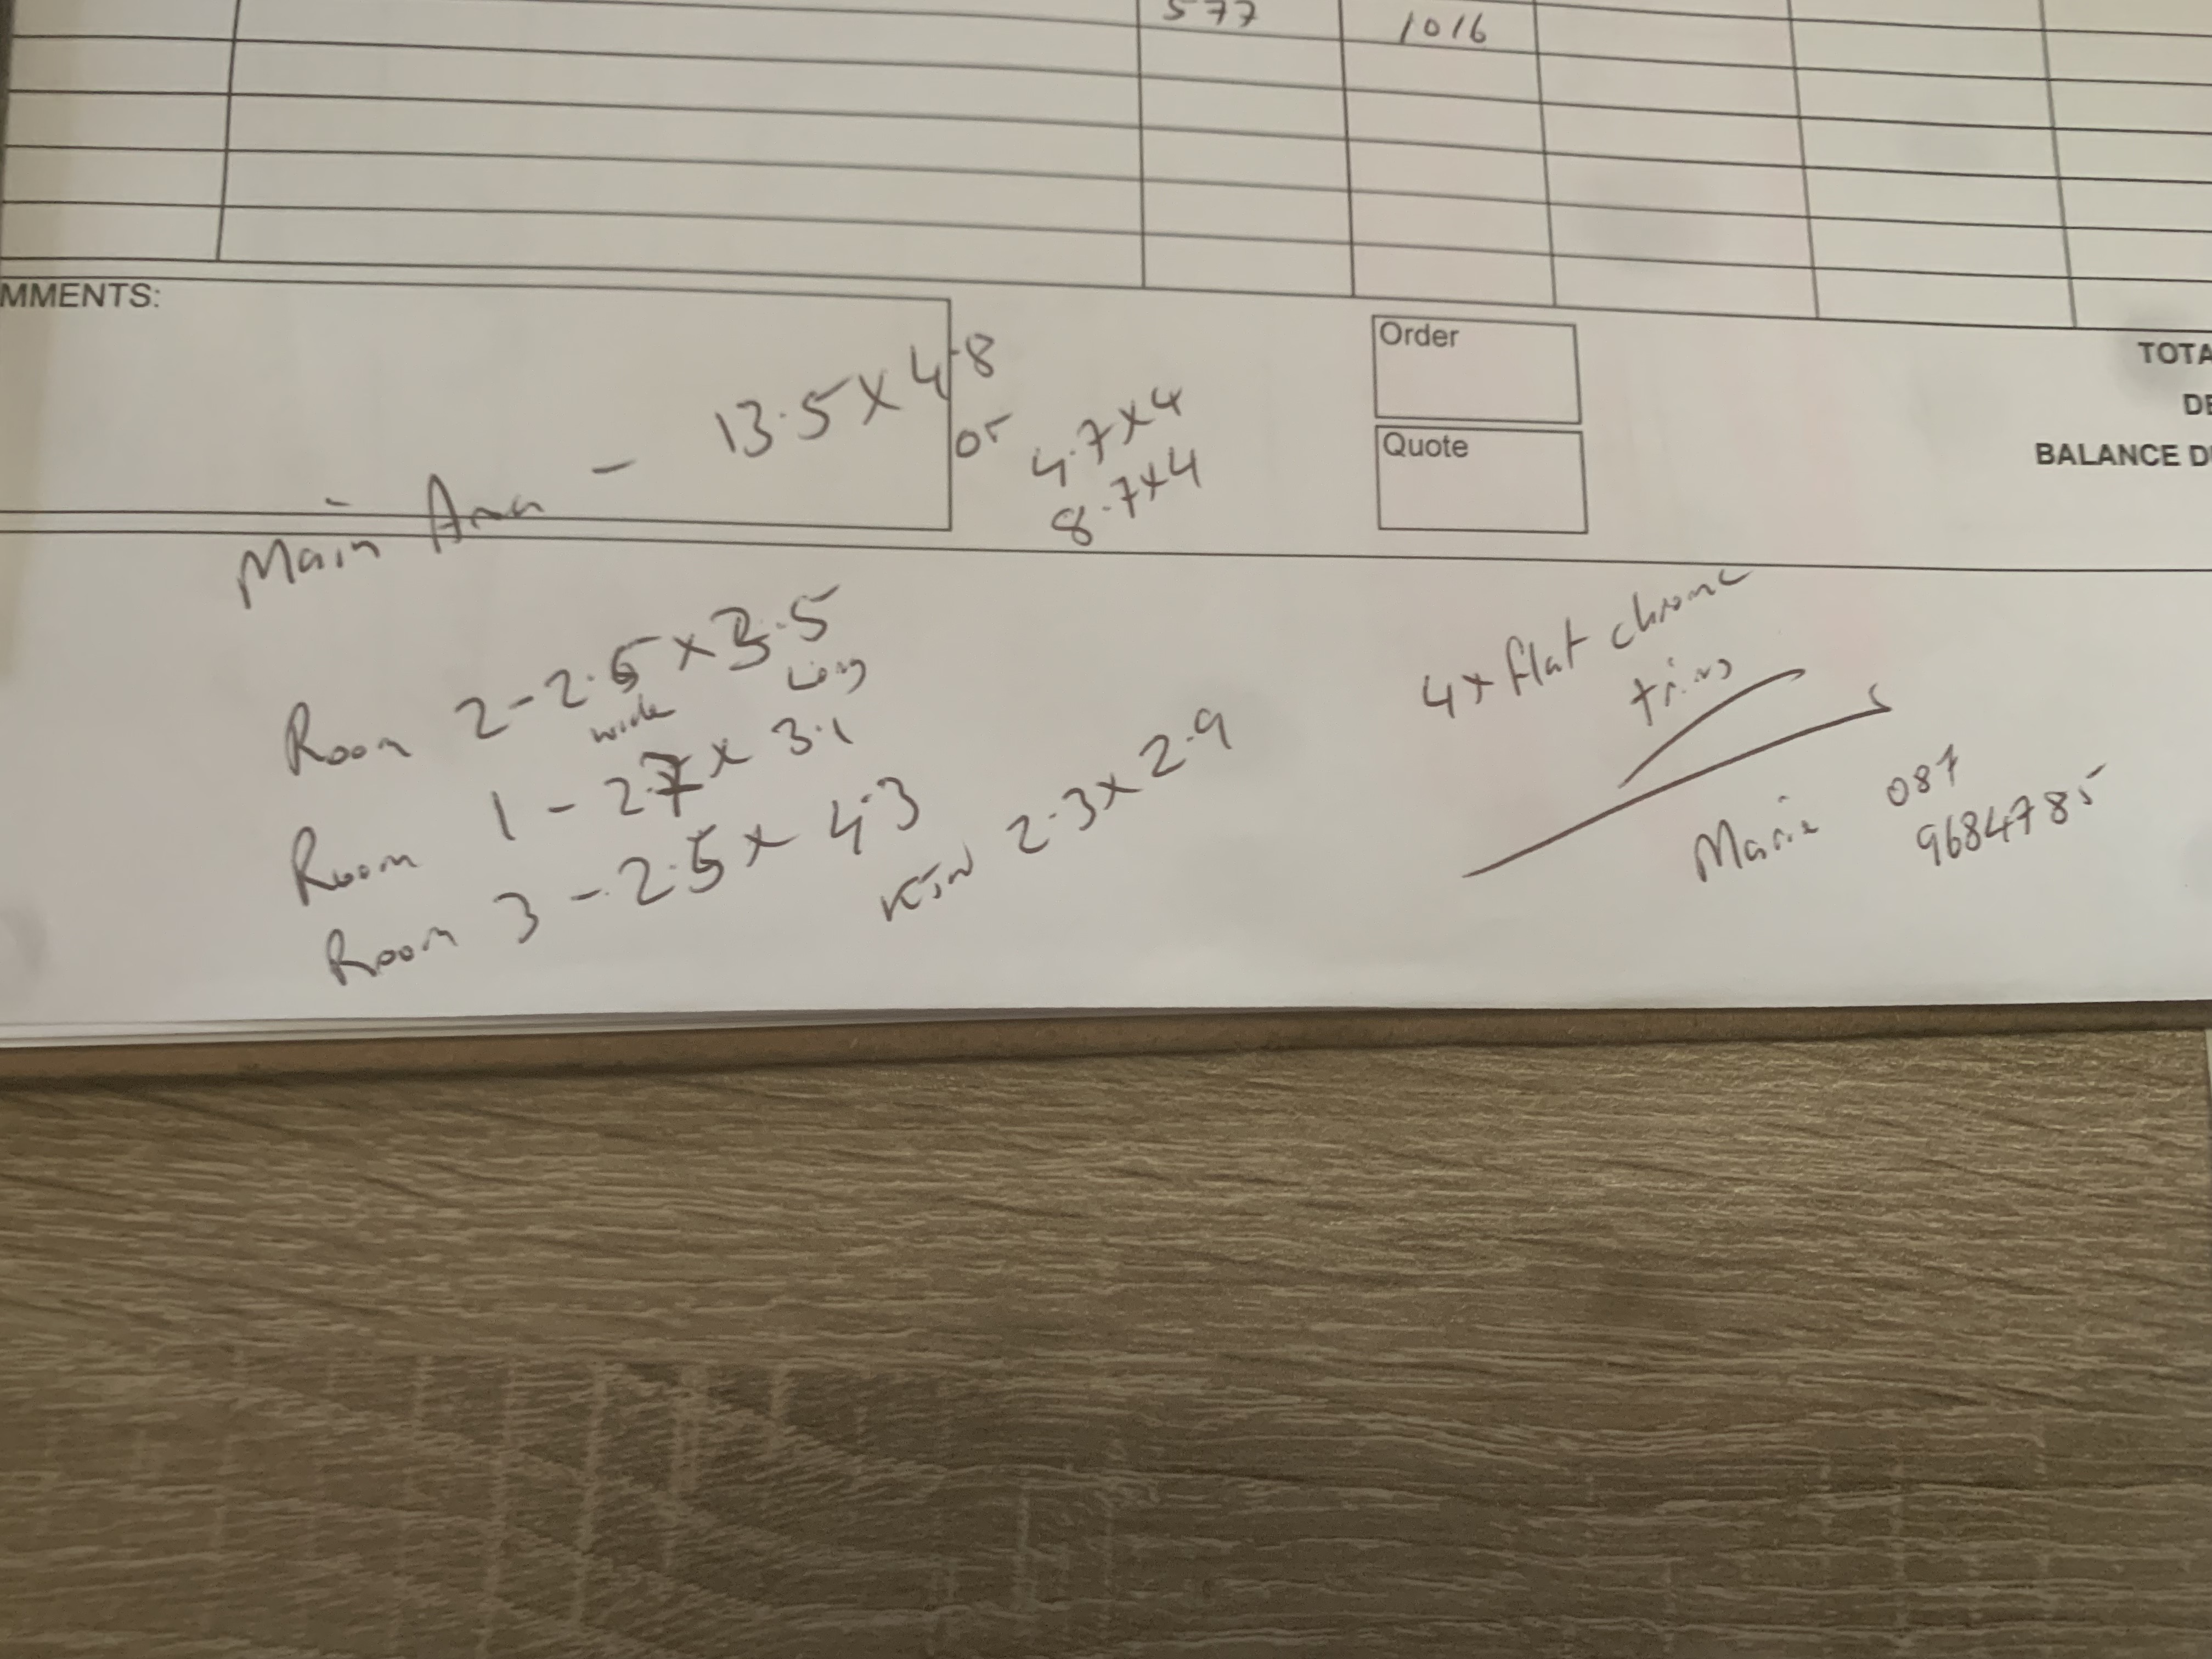 577 1016
MMENTS:
Order
TOTA
DE
Quote
BALANCE D
Main Area - 13.5 x 4.8
or 4.7x4
8.7x4
Room 2 - 2.5 x 3.5
wide Long
Room 1 - 2.7 x 3.1
Room 3 - 2.5 x 4.3
2.3 x 2.9
4x flat chrome
trims
Marie 087
9684785